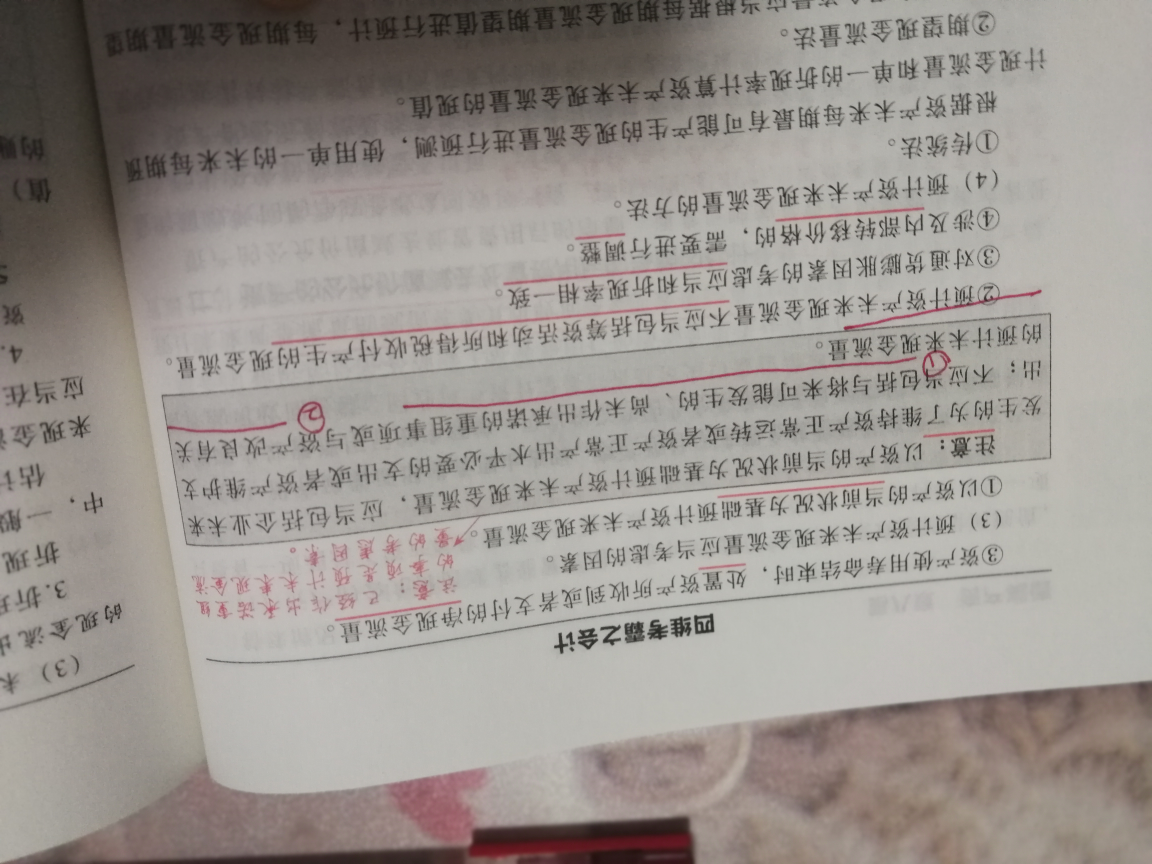 四维考霸之会计
③资产使用寿命结束时，处置资产所收到或者支付的净现金流量。
（3）预计资产未来现金流量应当考虑的因素。
①以资产的当前状况为基础预计资产未来现金流量。
注意：已经作出承诺重组
的事项是预计未来现金流
量的考虑因素。
注意：以资产的当前状况为基础预计资产未来现金流量，应当包括企业未来
发生的为了维持资产正常运转或者资产正常产出水平必要的支出或者资产维护支
出；不应当包括与将来可能发生的、尚未作出承诺的重组事项或与资产改良有关
的预计未来现金流量。
①
②
②预计资产未来现金流量不应当包括筹资活动和所得税收付产生的现金流量。
③对通货膨胀因素的考虑应当和折现率相一致。
④涉及内部转移价格的，需要进行调整。
（4）预计资产未来现金流量的方法。
①传统法。
根据资产未来每期最有可能产生的现金流量进行预测，使用单一的未来每期预
计现金流量和单一的折现率计算资产未来现金流量的现值。
②期望现金流量法。
现金流量应当根据每期现金流量期望值进行预计，每期现金流量期望
（3）未
的现金流出
3.折现
折现
中，一般
估计
来现金流
应当在
4.
资
值）
的